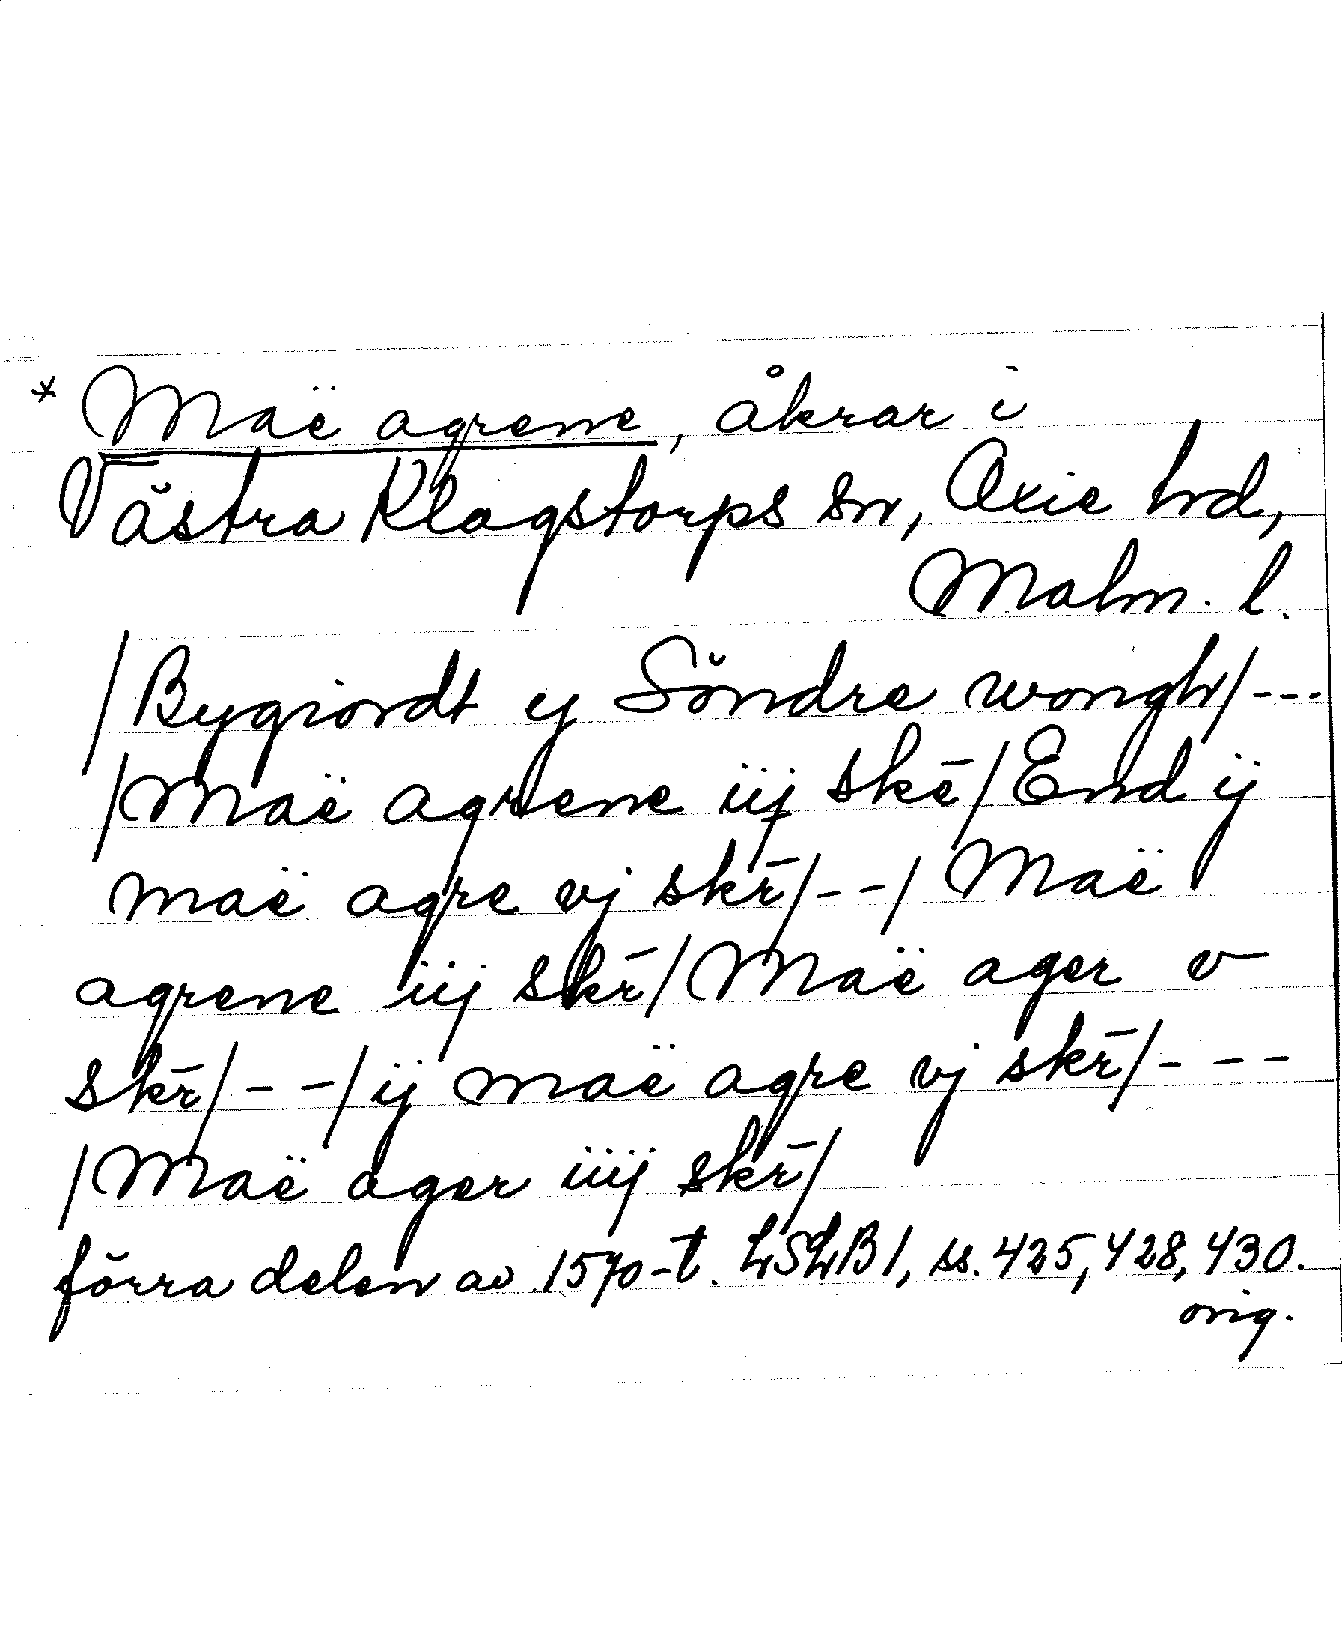 * Maë agrene, åkrar i
Västra Klagstorps sn, Oxie hd,
Malm. l.
/Bygiordt ij Söndre wongh/---
/Maë agrene iij skē/End ij
maë agre vj skr̄/--/Maë
agrene iij skr̄/Maë ager v
skr̄/--/ij maë agre vj skr̄/---
/Maë ager iiij skr̄/
förra delen av 1570-t. LSLB 1, ss. 425, 428, 430.
orig.